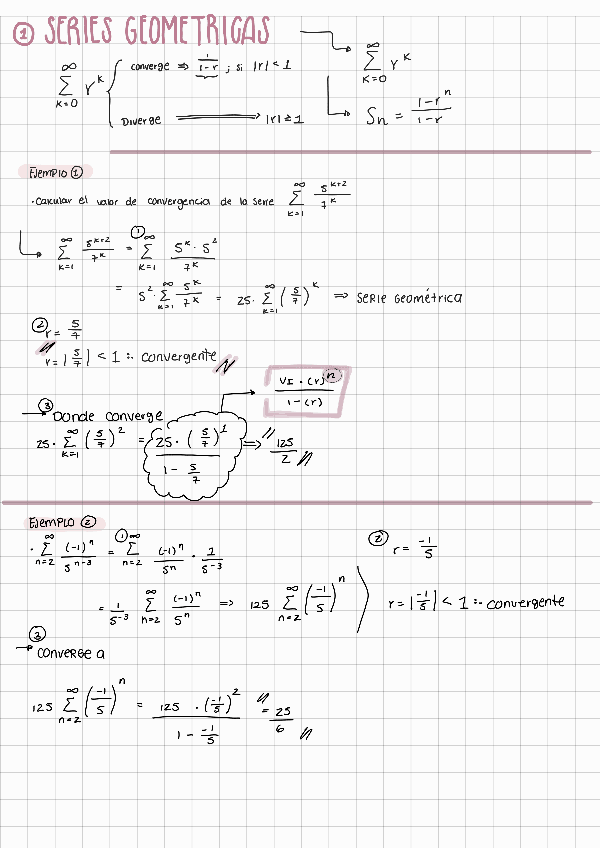 ① SERIES GEOMETRICAS
∞ Σ K=0 r^K { converge ⇒ 1/(1-r) ; si |r| < 1
Diverge ⟹ |r| ≥ 1
∞ Σ K=0 r^K
Sn = (1-r^n)/(1-r)
Ejemplo ①
· Calcular el valor de convergencia de la serie ∞ Σ K=1 5^(K+2)/7^K
∞ Σ K=1 5^(K+2)/7^K = ① ∞ Σ K=1 (5^K · 5^2)/7^K
= 5^2 · ∞ Σ K=1 5^K/7^K = 25 · ∞ Σ K=1 (5/7)^K ⇒ serie Geométrica
② r = 5/7
r = |5/7| < 1 ∴ convergente
(VI · (r)^n)/(1-(r))
③ Donde converge
25 · ∞ Σ K=1 (5/7)^2 = (25 · (5/7)^1)/(1 - 5/7) ⇒ 125/2
Ejemplo ②
· ∞ Σ n=2 (-1)^n/5^(n-3) = ① ∞ Σ n=2 (-1)^n/5^n · 1/5^-3
= 1/5^-3 ∞ Σ n=2 (-1)^n/5^n ⇒ 125 ∞ Σ n=2 (-1/5)^n
② r = -1/5
r = |-1/5| < 1 ∴ convergente
③
→ converge a
125 ∞ Σ n=2 (-1/5)^n = (125 · (-1/5)^2)/(1 - -1/5) = 25/6